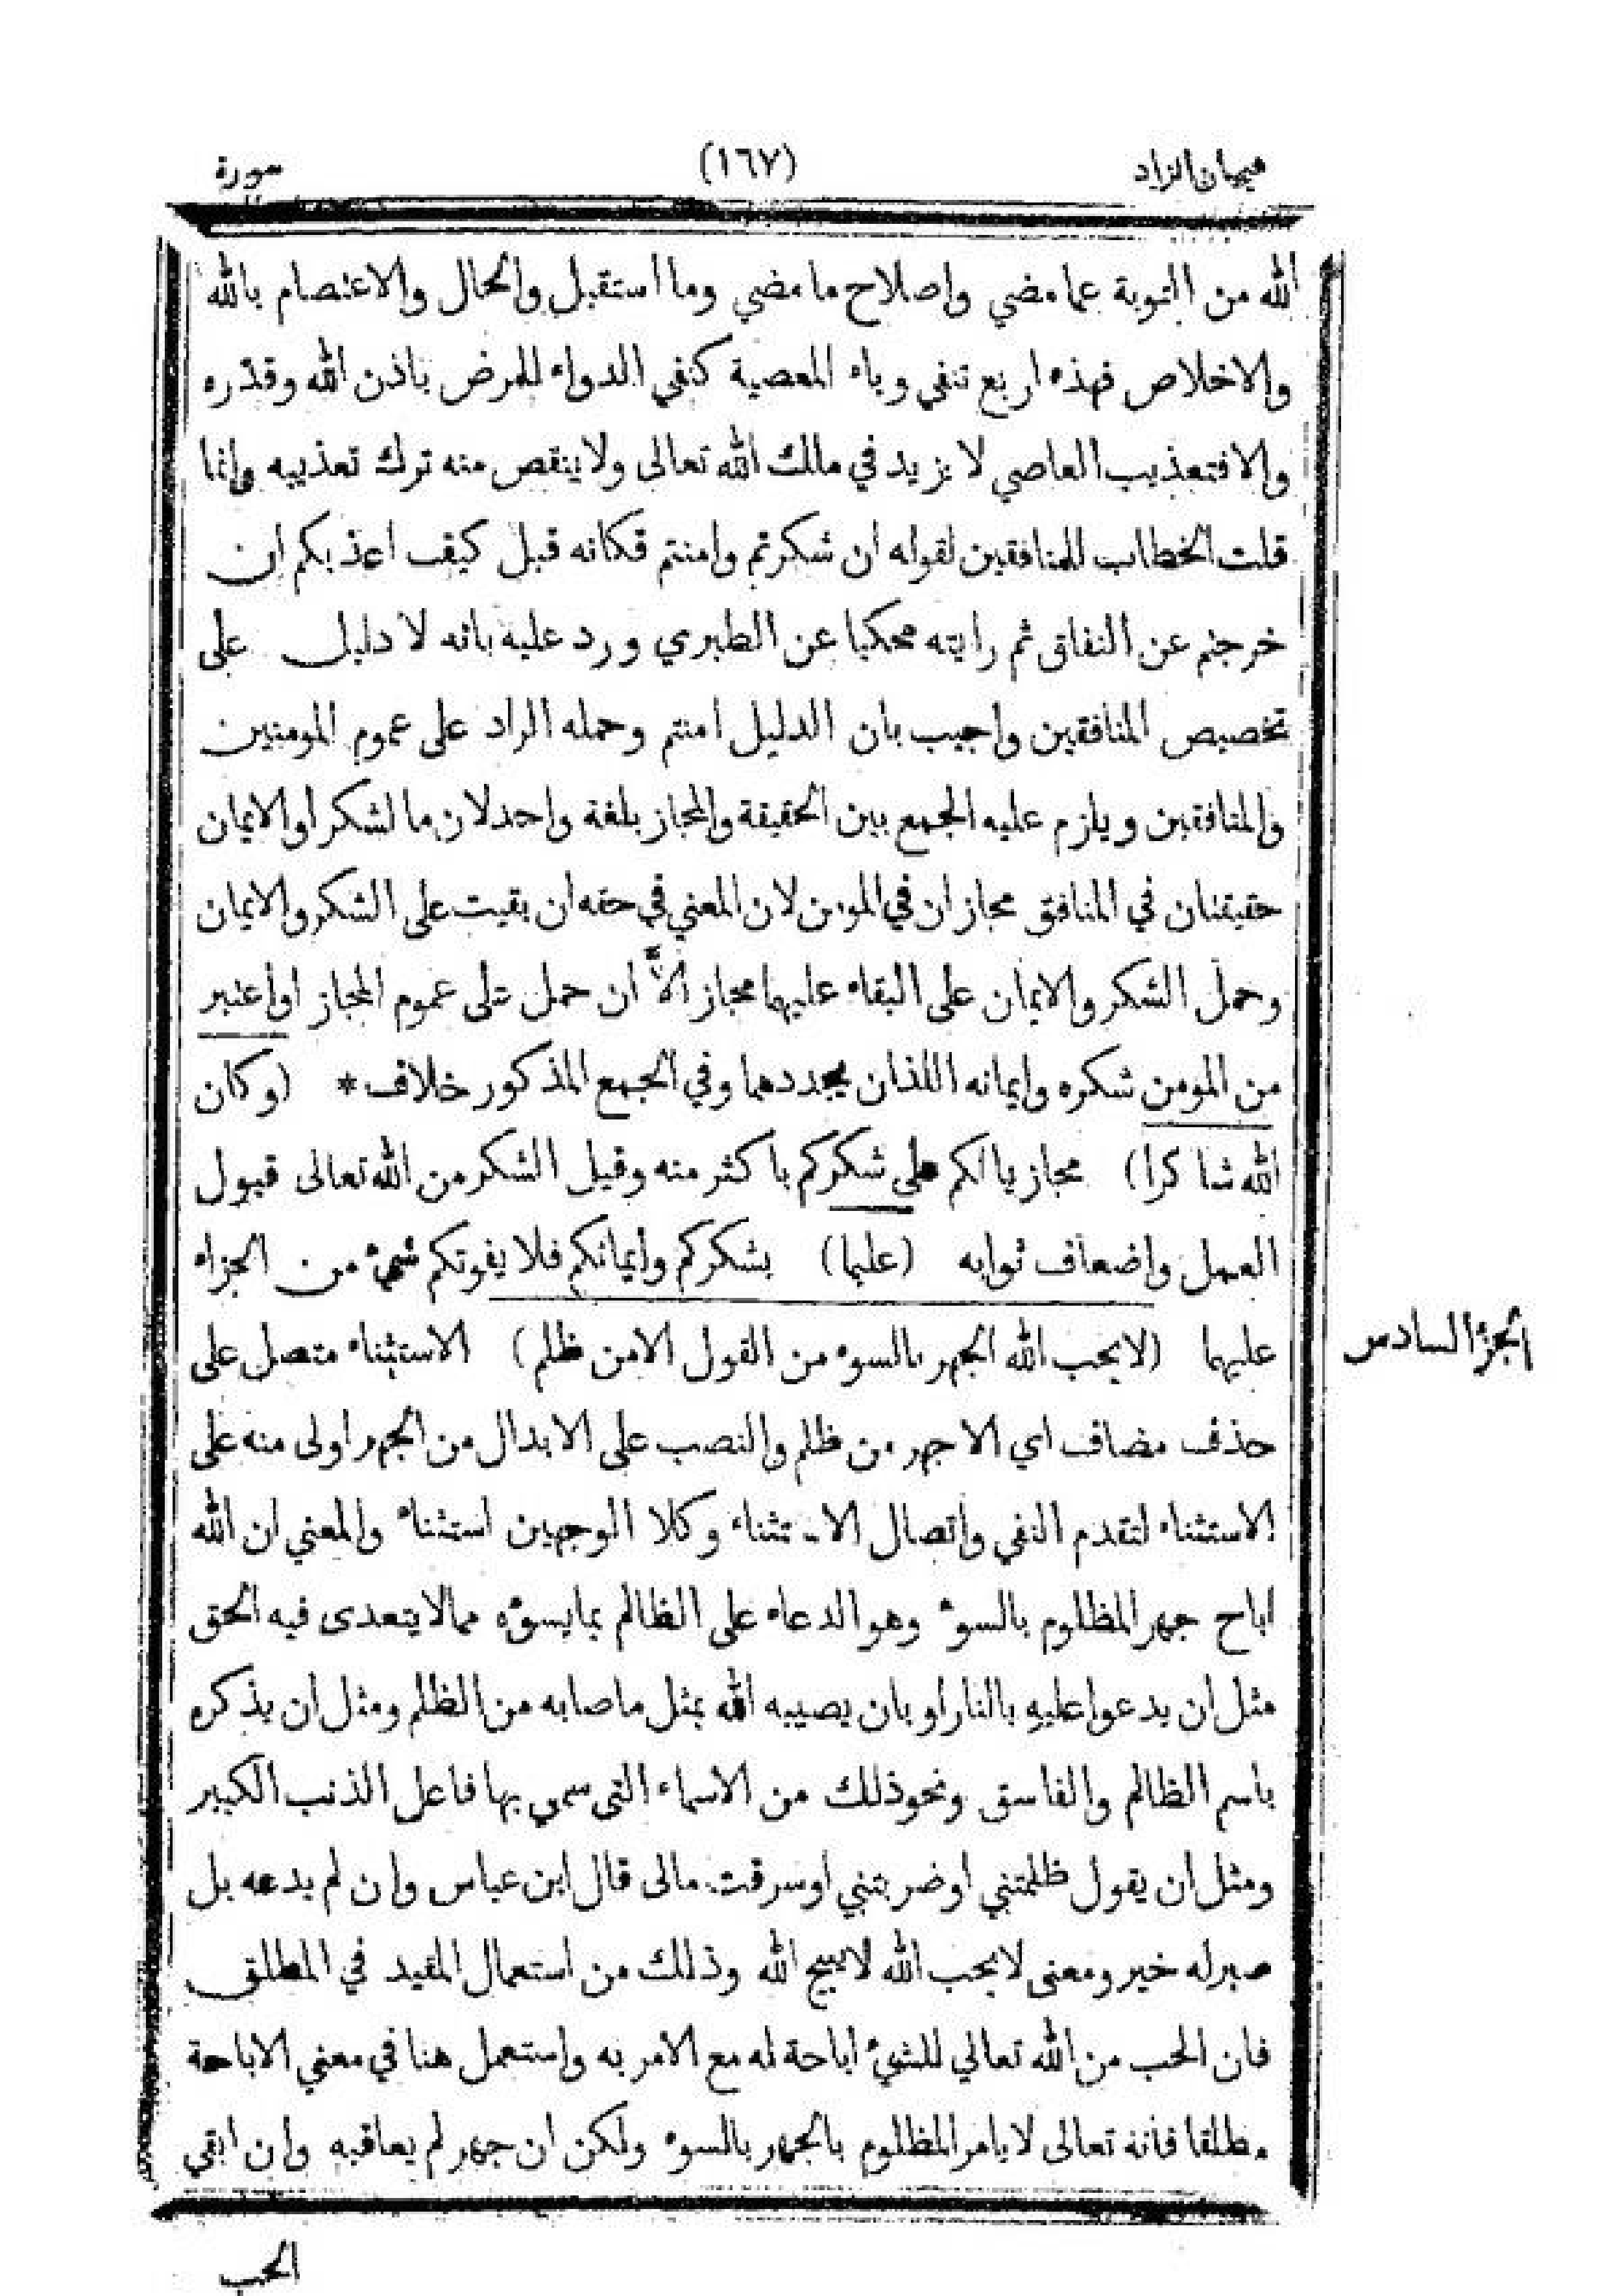 هيميان الزاد (١٦٧) سورة
الله من التوبة عما مضي واصلاح ما مضي وما استقبل والحال والاعتصام بالله
والاخلاص فهذه اربع تنفي وباء المعصية كنفي الدواء للمرض باذن الله وقدره
والا فتعذيب العاصي لا يزيد في مالك الله تعالى ولا ينقص منه ترك تعذيبه وانما
قلت الخطاب للمنافقين لقوله ان شكرتم وامنتم فكانه قيل كيف اعذبكم ان
خرجتم عن النفاق ثم رايته محكيا عن الطبري ورد عليه بانه لا دليل على
تخصيص المنافقين واجيب بان الدليل امنتم وحمله الراد على عموم المومنين
والمنافقين ويلزم عليه الجمع بين الحقيقة والمجاز بلغة واحد لان ما لشكر او الايمان
حقيقتان في المنافق مجازان في المومن لان المعني في حقه ان بقيت على الشكر والايمان
وحمل الشكر والايمان على البقاء عليهما مجاز الاَّ ان حمل على عموم المجاز او اعتبر
من المومن شكره وايمانه اللذان يجددهما وفي الجمع المذكور خلاف * (وكان
الله شاكرا) مجازيا لكم على شكركم باكثر منه وقيل الشكر من الله تعالى قبول
العمل واضعاف ثوابه (عليما) بشكركم وايمانكم فلا يفوتكم شيء من الجزاء
عليهما (لا يحب الله الجهر بالسوء من القول الا من ظلم) الاستثناء متصل على
الجزؤ السادس
حذف مضاف اي الا جهر من ظلم والنصب على الابدال من الجهر اولى منه على
الاستثناء لتقدم النفي واتصال الاستثناء وكلا الوجهين استثناء والمعني ان الله
اباح جهر المظلوم بالسوء وهو الدعاء على الظالم بما يسوءه مما لا يتعدى فيه الحق
مثل ان يدعوا عليه بالنار او بان يصيبه الله بمثل ما صابه من الظلم ومثل ان يذكره
باسم الظالم والفاسق ونحو ذلك من الاسماء التي سمي بها فاعل الذنب الكبير
ومثل ان يقول ظلمتني او ضربتني او سرقت مالى قال ابن عباس وان لم يدعه بل
صبر له خير ومعنى لا يحب الله لا يبيح الله وذلك من استعمال المقيد في المطلق
فان الحب من الله تعالي للشيء اباحة له مع الامر به واستعمل هنا في معني الاباحة
مطلقا فانه تعالى لا يامر المظلوم بالجهر بالسوء ولكن ان جهر لم يعاقبه وان ابقي
الحب